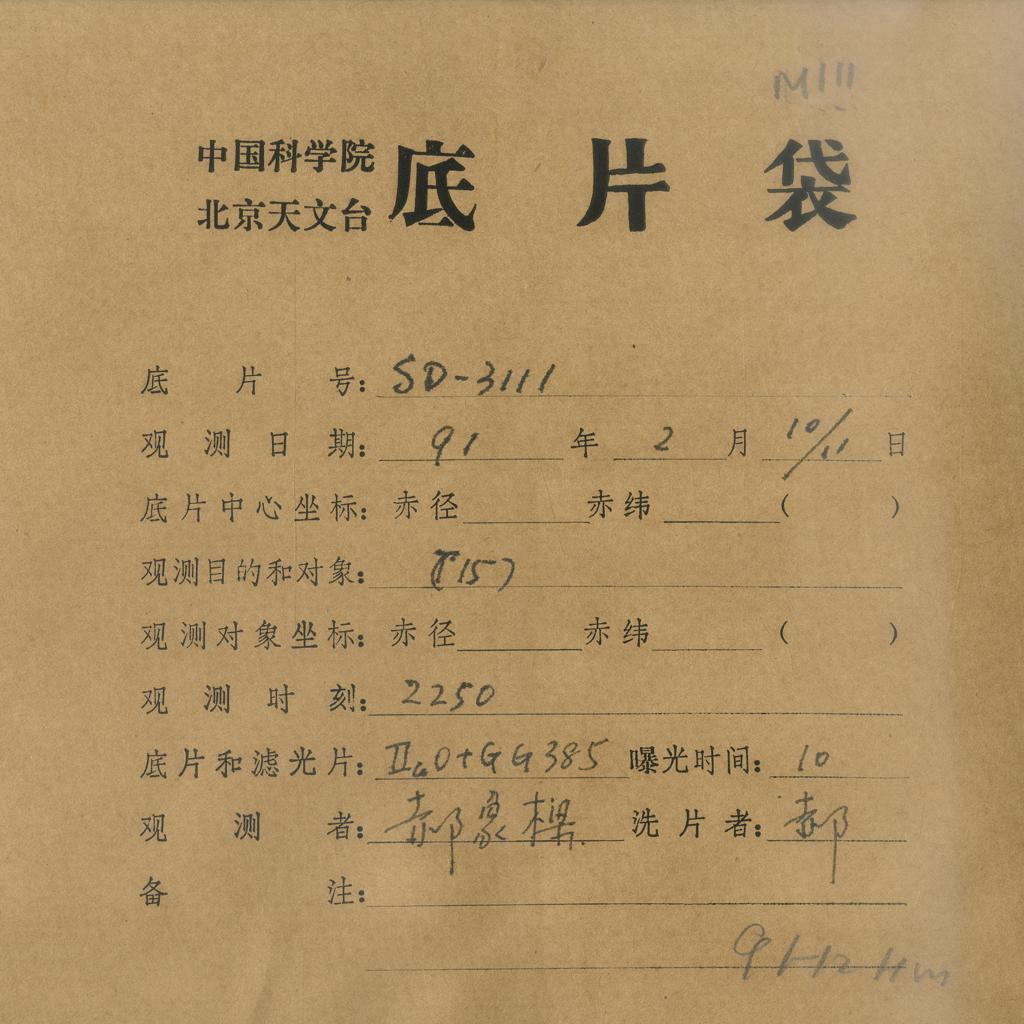 M111
中国科学院
北京天文台 底片袋
底片号: SD-3111
观测日期: 91 年 2 月 10/11 日
底片中心坐标: 赤径 赤纬 ( )
观测目的和对象: (15)
观测对象坐标: 赤径 赤纬 ( )
观测时刻: 2250
底片和滤光片: IIaO+GG385 曝光时间: 10
观测者: 郝象樑 洗片者: 郝
备注: